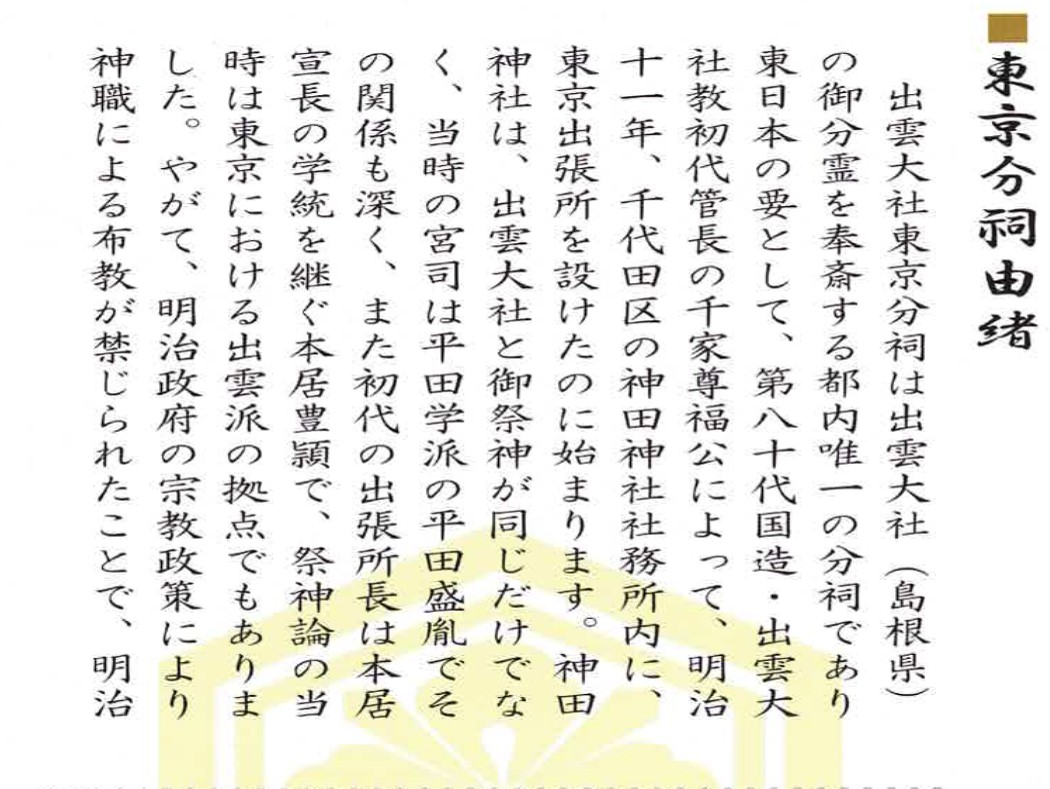 ■東京分祠由緒
出雲大社東京分祠は出雲大社（島根県）
の御分霊を奉斎する都内唯一の分祠であり
東日本の要として、第八十代国造・出雲大
社教初代管長の千家尊福公によって、明治
十一年、千代田区の神田神社社務所内に、
東京出張所を設けたのに始まります。神田
神社は、出雲大社と御祭神が同じだけでな
く、当時の宮司は平田学派の平田盛胤でそ
の関係も深く、また初代の出張所長は本居
宣長の学統を継ぐ本居豊頴で、祭神論の当
時は東京における出雲派の拠点でもありま
した。やがて、明治政府の宗教政策により
神職による布教が禁じられたことで、明治